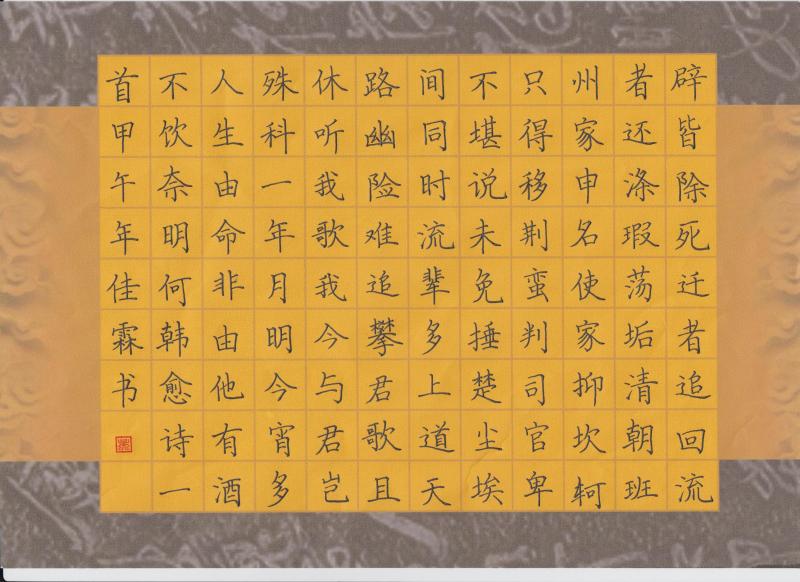 辟皆除死迁者追回流
者还涤瑕荡垢清朝班
州家申名使家抑坎轲
只得移荆蛮判司官卑
不堪说未免捶楚尘埃
间同时流辈多上道天
路幽险难追攀君歌且
休听我歌我今与君岂
殊科一年月明今宵多
人生由命非由他有酒
不饮奈明何韩愈诗一
首甲午年佳霖书